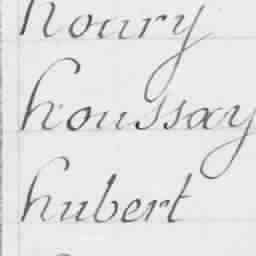 houry
houssay
hubert